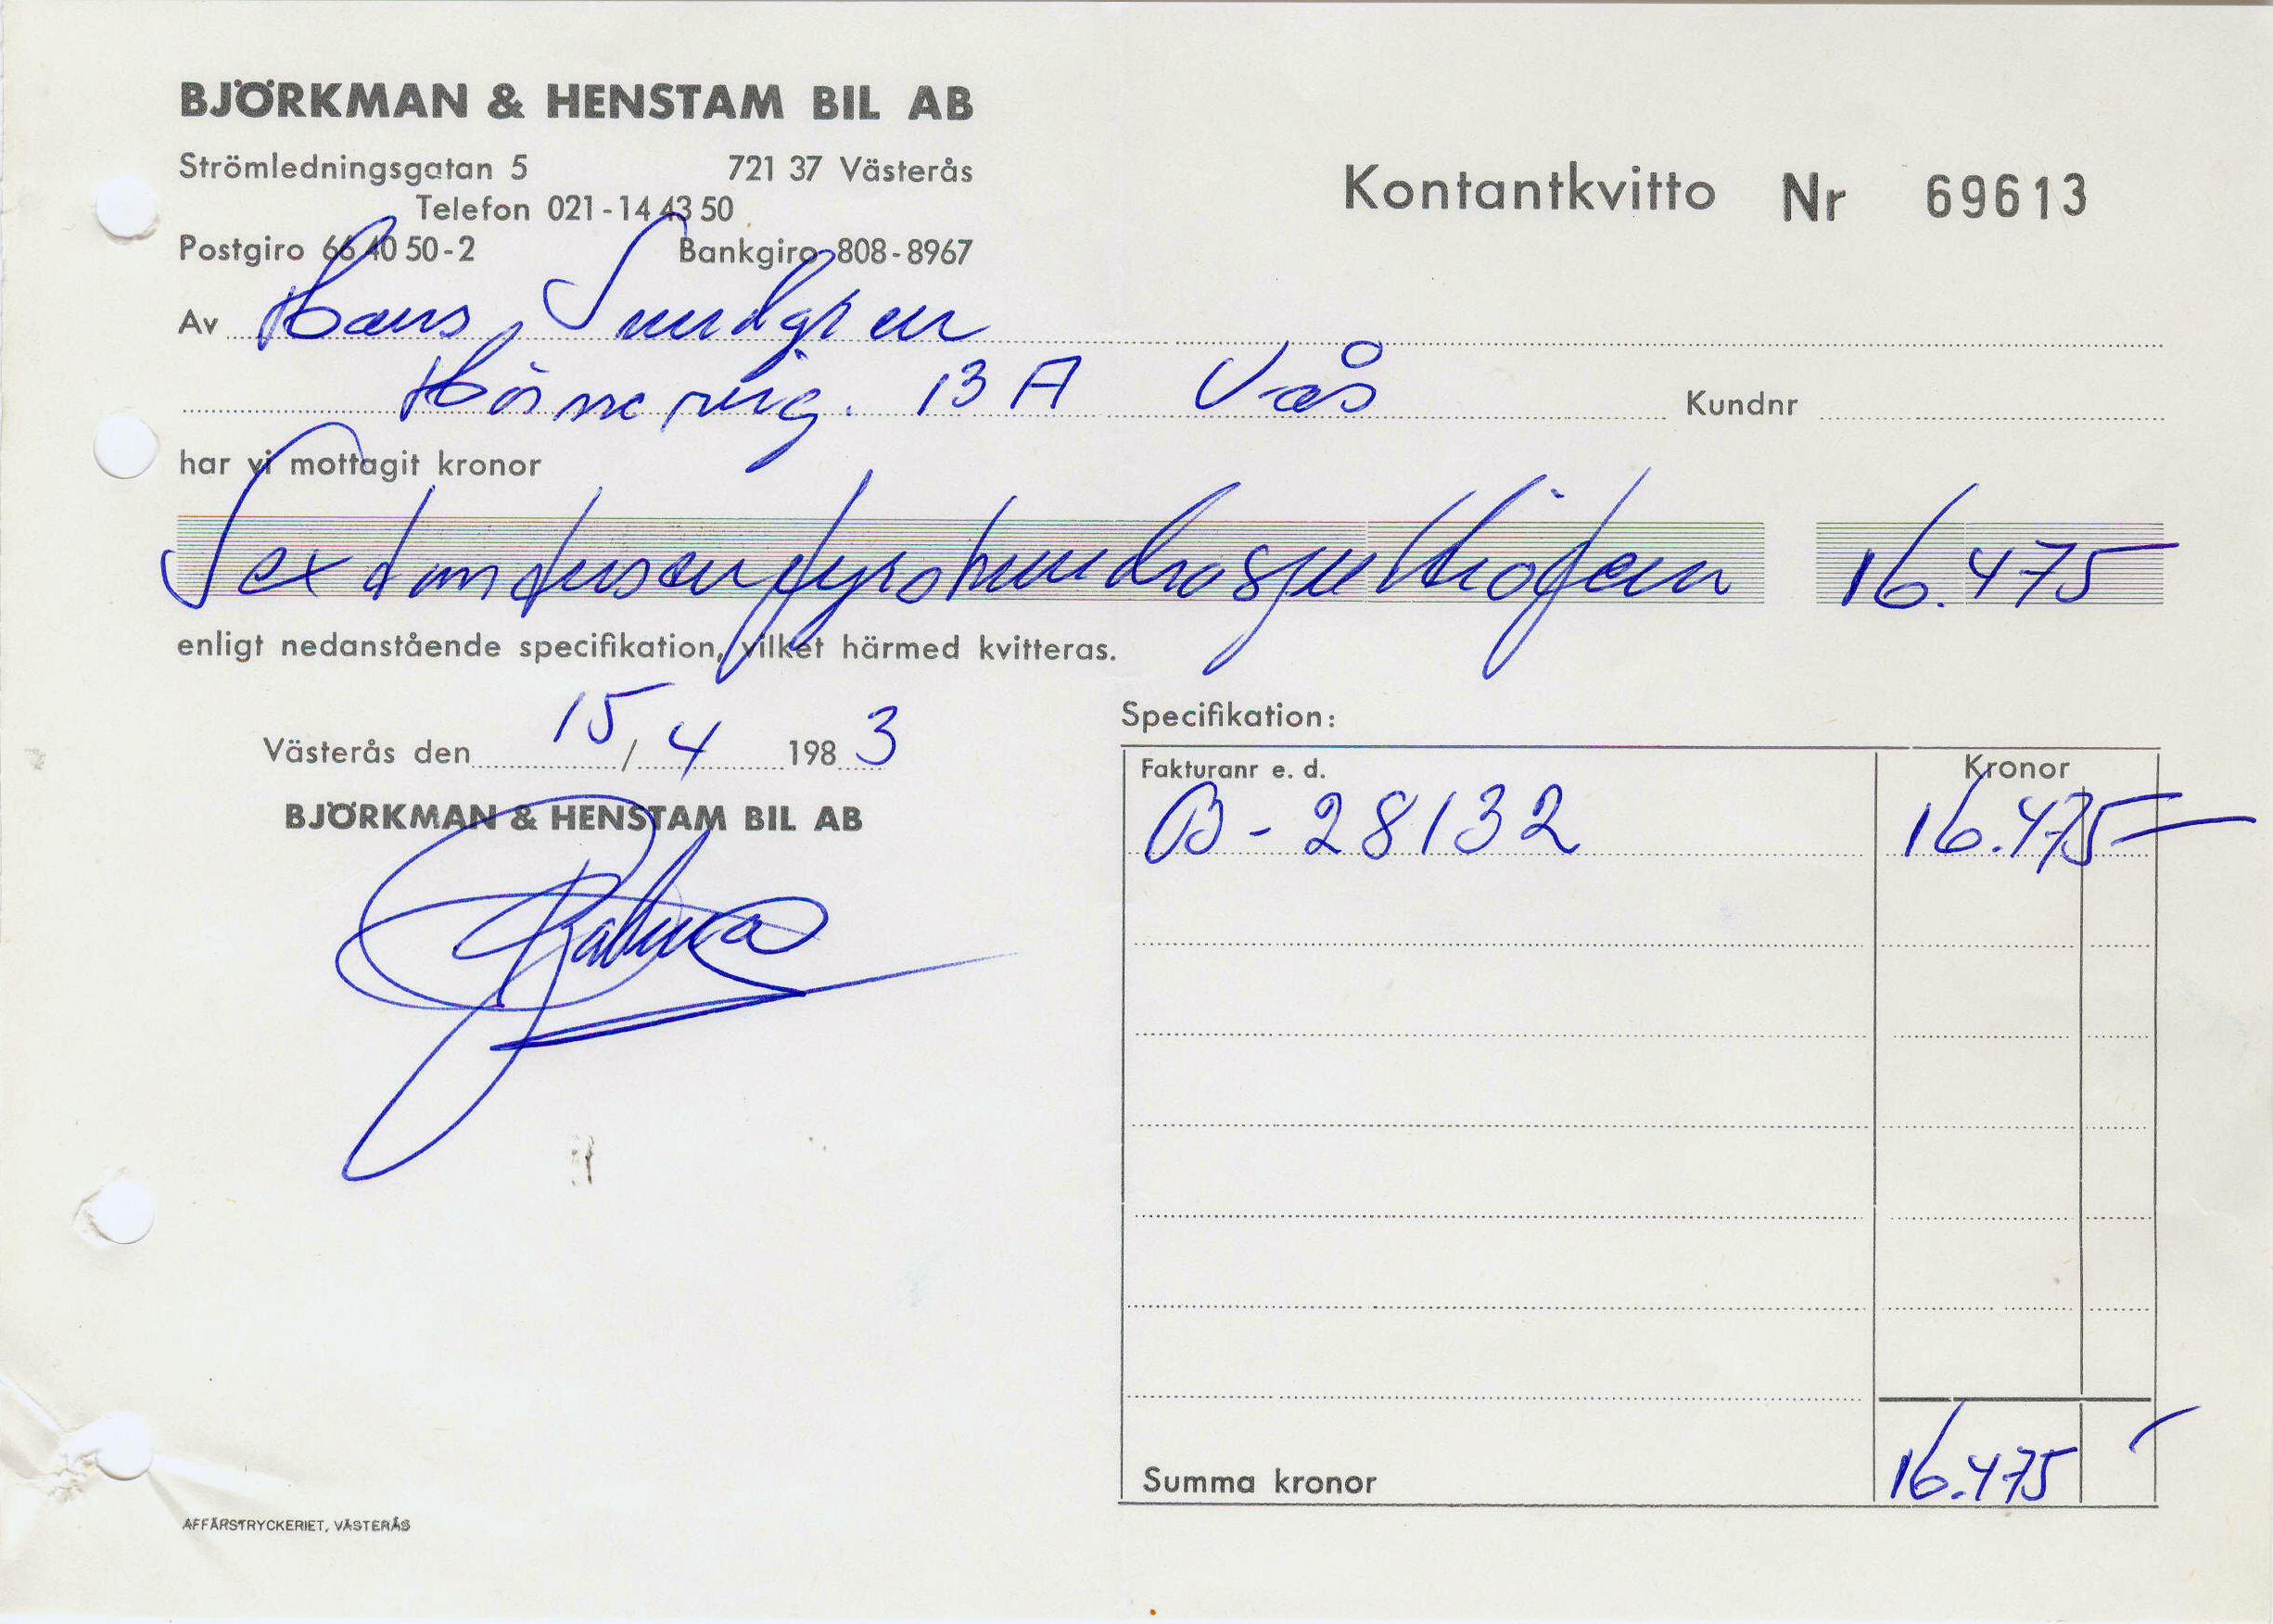 BJÖRKMAN & HENSTAM BIL AB
Strömledningsgatan 5 721 37 Västerås
Telefon 021-14 43 50
Postgiro 66 40 50-2 Bankgiro 808-8967
Kontantkvitto Nr 69613
Av Hans Sundgren
13 A Vås Kundnr
har vi mottagit kronor
Sextontusenfyrahundrasjuttiofem 16.475
enligt nedanstående specifikation, vilket härmed kvitteras.
Västerås den 15/4 1983
BJÖRKMAN & HENSTAM BIL AB
Specifikation:
Fakturanr e. d. Kronor
B-28132 16.475-
Summa kronor 16.475 -
AFFÄRSTRYCKERIET, VÄSTERÅS